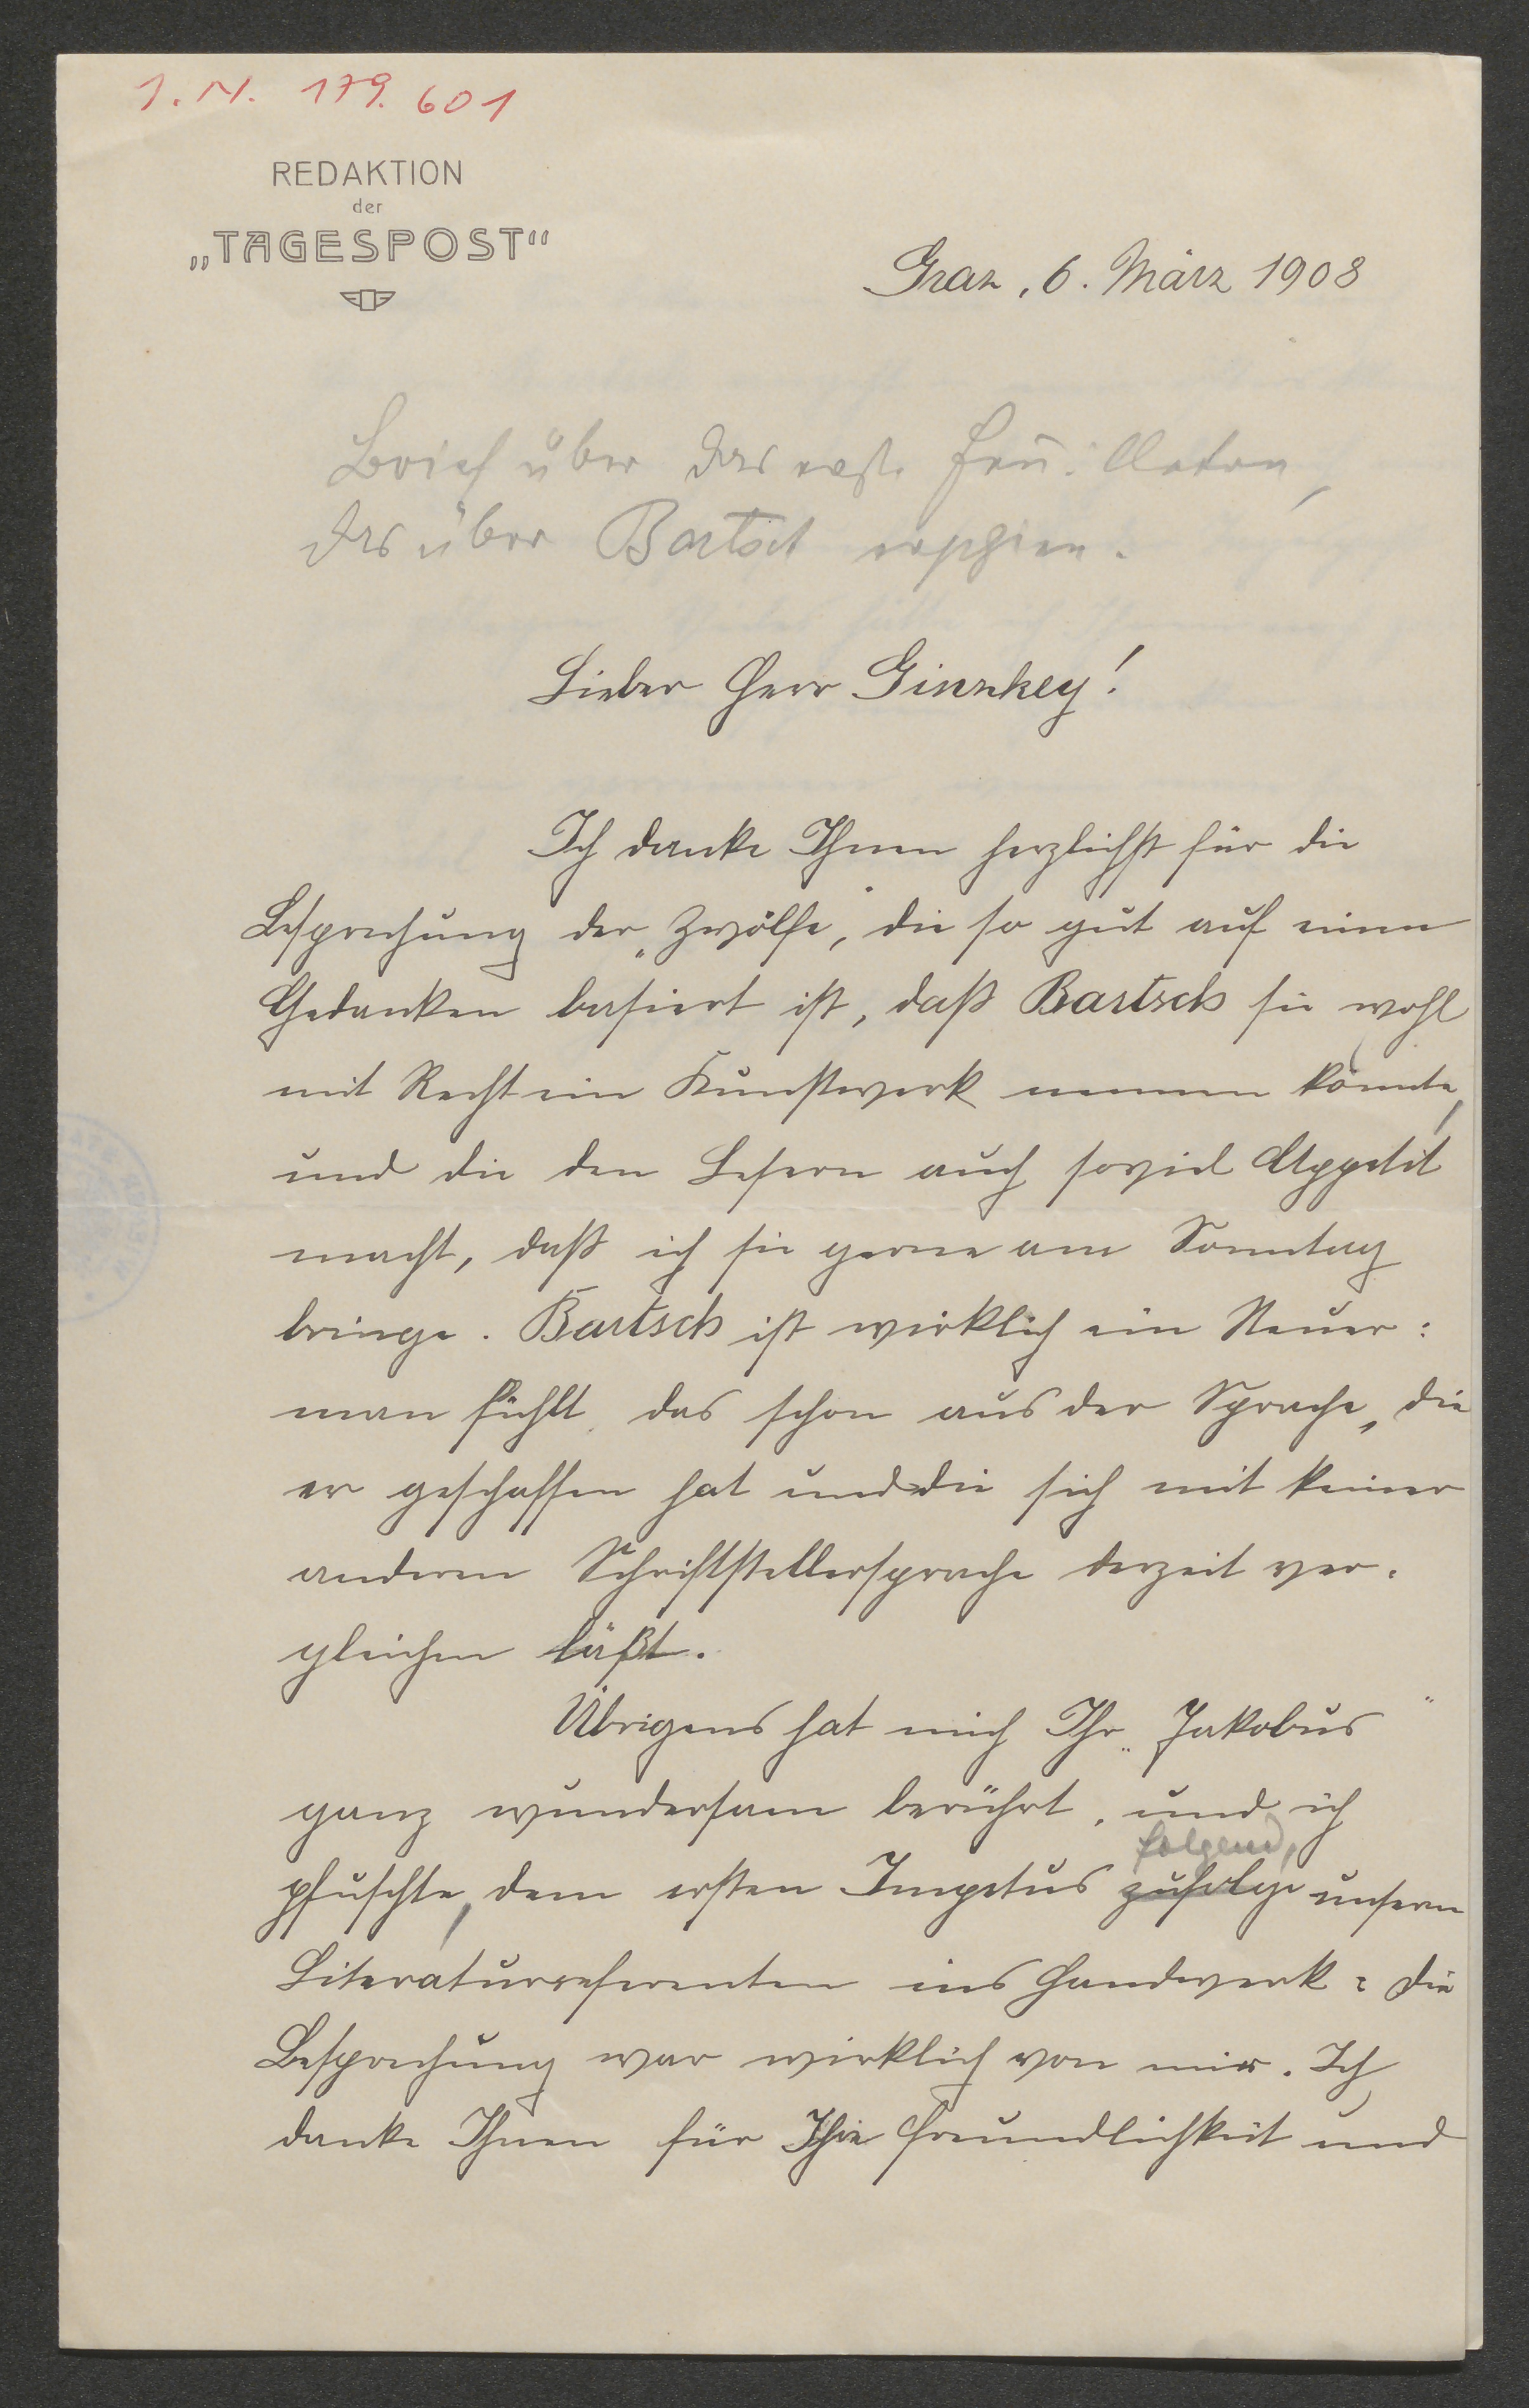 I. N. 179.601
REDAKTION
der
„TAGESPOST“
Graz, 6. März 1908
Brief über das erste Feuilleton,
das über Bartsch erschien.
Lieber Herr Ginzkey!
Ich danke Ihnen herzlichst für die
Besprechung der „Zwölfe“, die so gut auf einem
Gedanken basiert ist, daß Bartsch sie wohl
mit Recht ein Kunstwerk nennen könnte,
und die den Lesern auch soviel Appetit
macht, daß ich sie gerne am Sonntag
bringe. Bartsch ist wirklich ein Neuer:
man fühlt das schon aus der Sprache, die
er geschaffen hat und die sich mit keiner
anderen Schriftstellersprache derzeit ver-
gleichen läßt.
Übrigens hat mich Ihr „Jakobus“
ganz wundersam berührt, und ich
folgend,
pfuschte, dem ersten Impetus zufolge unserm
Literaturreferenten ins Handwerk: die
Besprechung war wirklich von mir. Ich
danke Ihnen für Ihre Freundlichkeit und